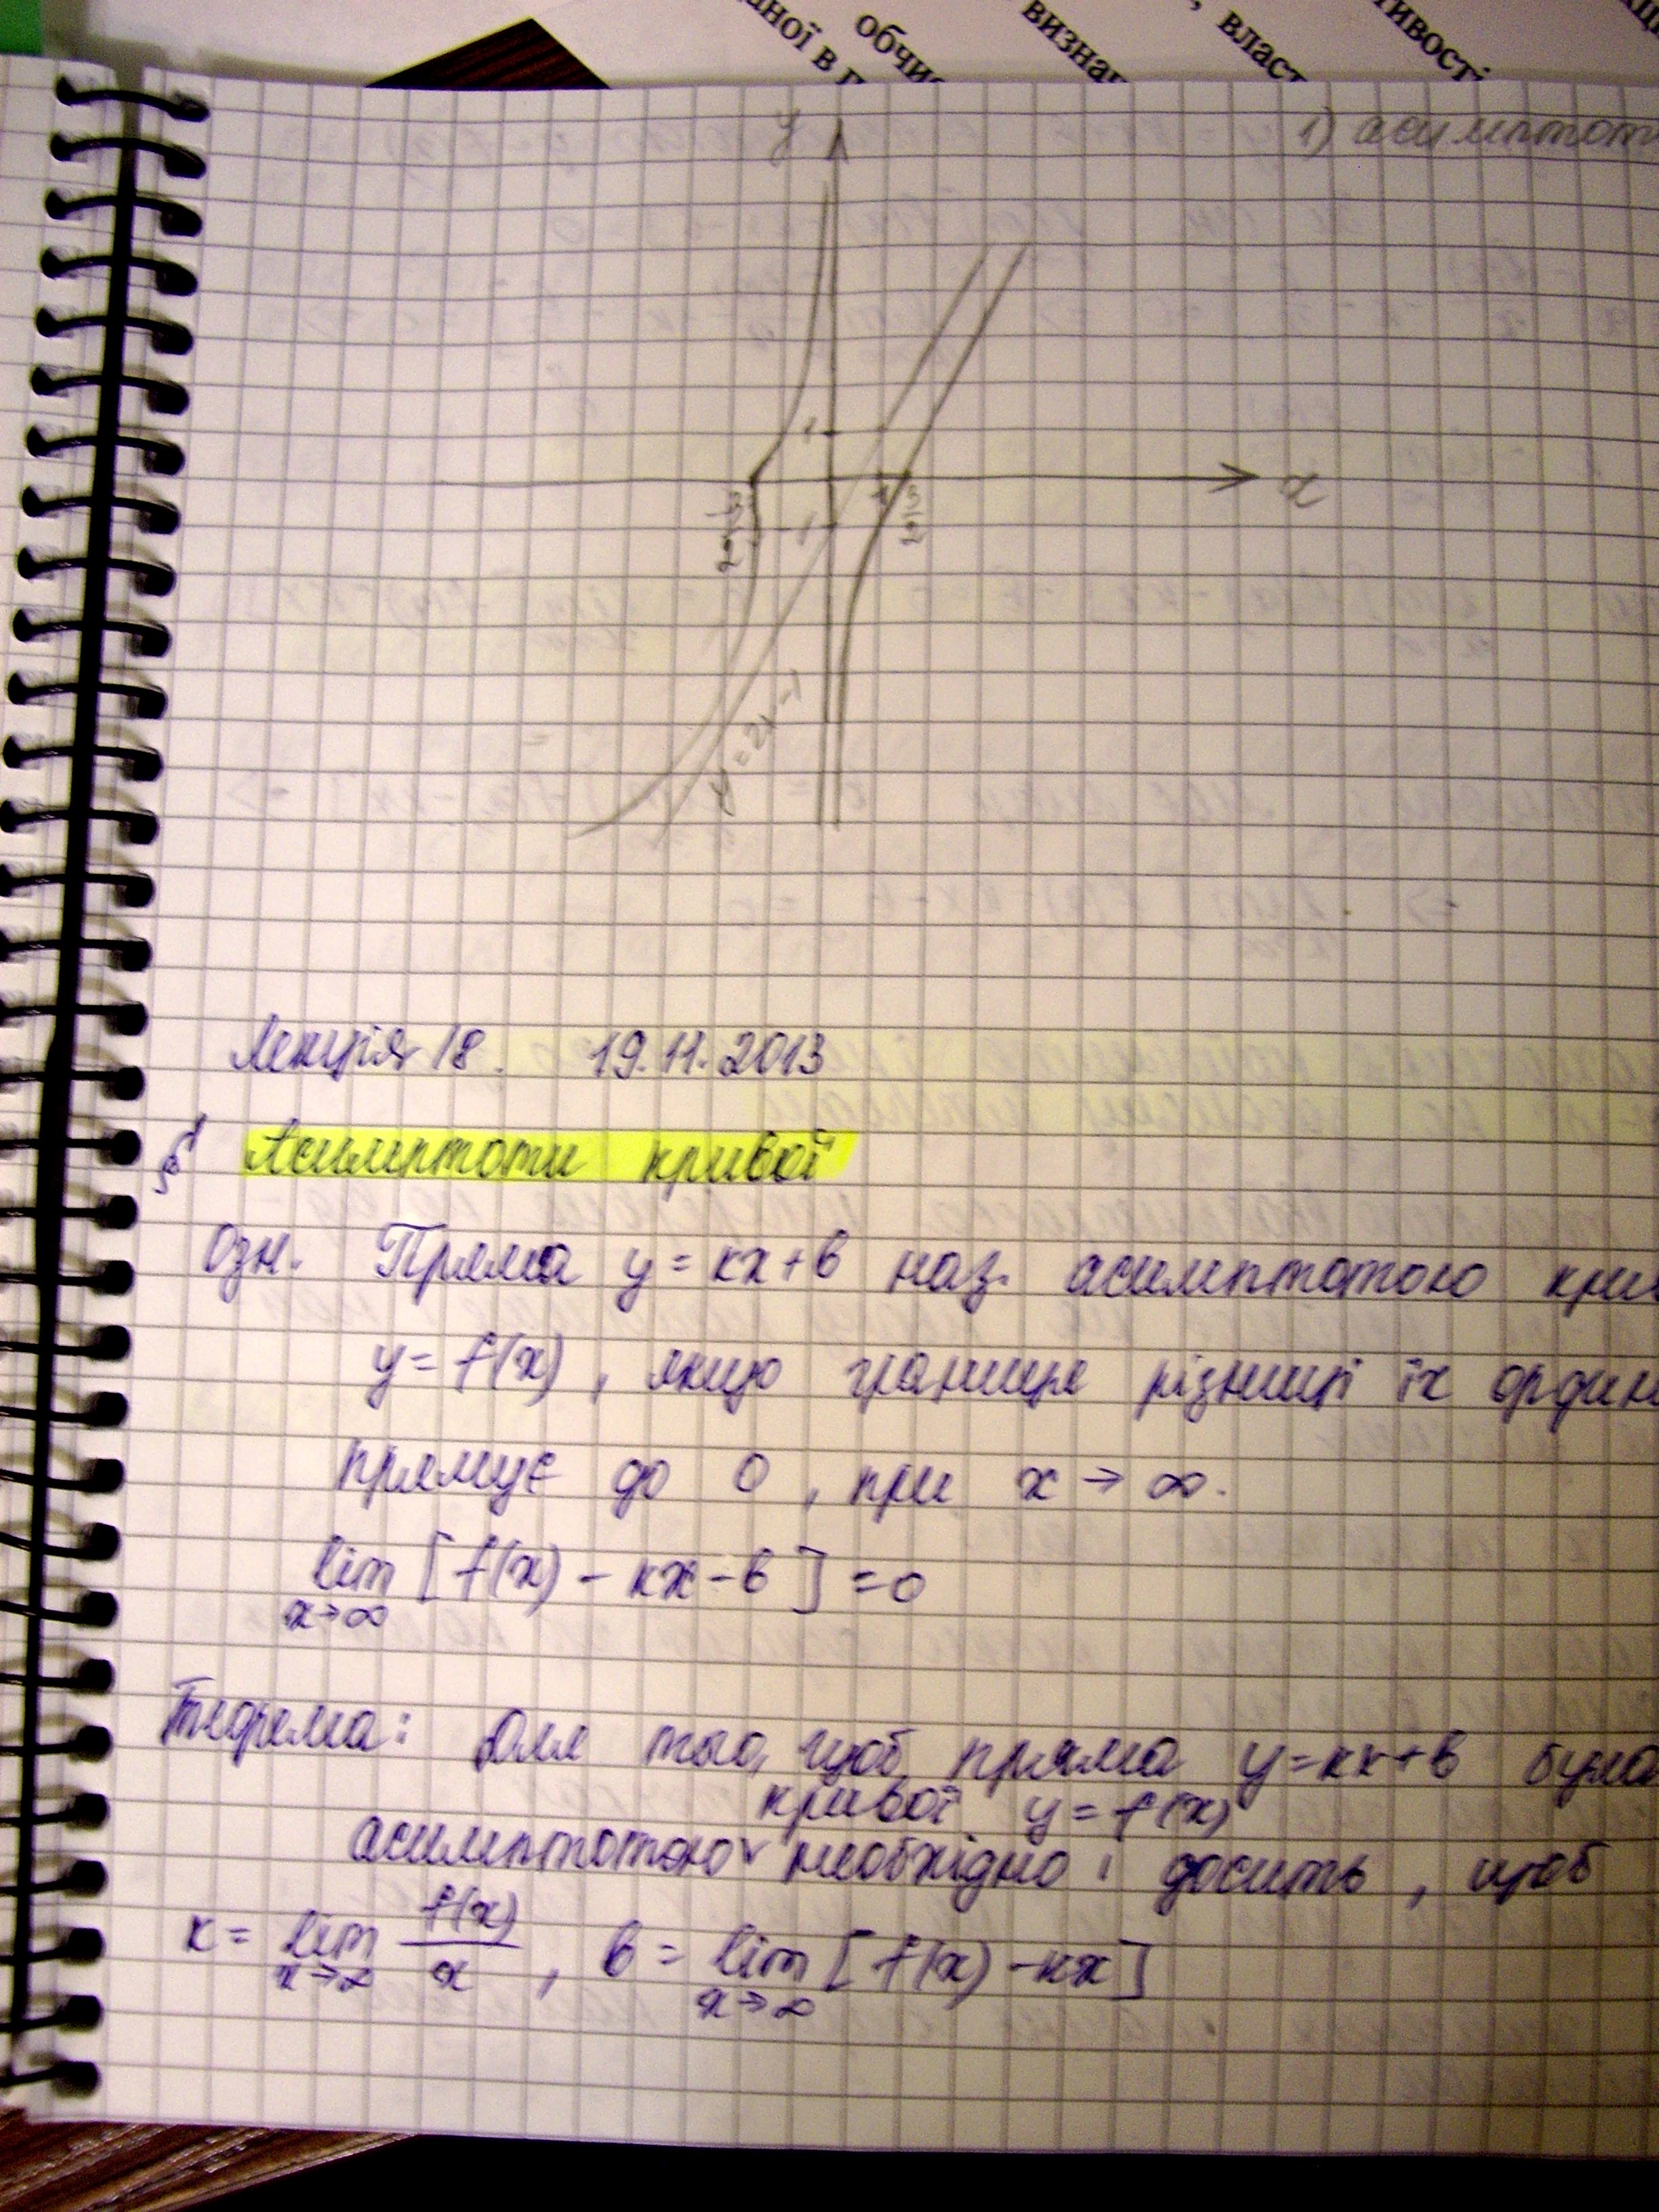 аної в п
обчис
визнач
, власт
тивості
1) асимптот
y
1
x
-3/2
1
3/2
-1
y=2x-1
Лекція 18. 19.11.2013
§ Асимптоти кривої
Озн. Пряма y=kx+b наз. асимптотою кри
y=f(x), якщо границя різниці їх ордин
прямує до 0, при x→∞.
lim [f(x)-kx-b]=0
x→∞
Теорема: Для того, щоб пряма y=kx+b була
кривої y=f(x)
асимптотою необхідно і досить, щоб
k= lim f(x)/x, b= lim [f(x)-kx]
x→∞ x→∞